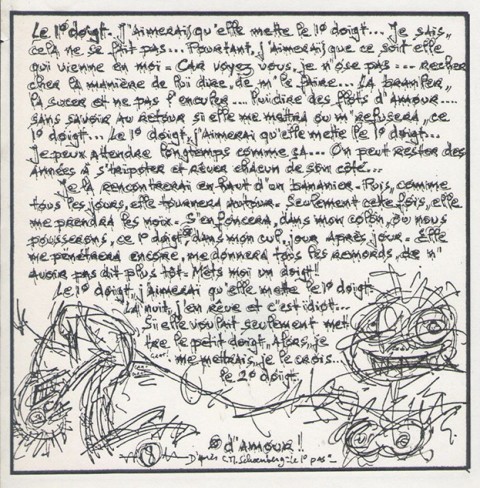 Le 1° doigt. J'aimerais qu'elle mette le 1° doigt... Je sais,
cela ne se fait pas... Pourtant, j'aimerais que ce soit elle
qui vienne en moi. Car voyez vous, je n'ose pas... recher
cher la manière de lui dire, de m'le faire... La branler,
la sucer et ne pas l'enculer... lui dire des mots d'amour....
sans savoir au retour si elle me mettra ou m'refusera, ce
1° doigt... Le 1° doigt, j'aimerai qu'elle mette le 1° doigt...
Je peux attendre longtemps comme ça... On peut rester des
années à s'tripoter et rêver chacun de son côté...
Je la rencontrerai en haut d'un bananier. Puis, comme
tous les jours, elle tournera autour. Seulement cette fois, elle
me prendra les noix. S'enfoncera, dans mon colon, où nous
pousserons, ce 1° doigt, dans mon cul, jour après jour. Elle
me pénétrera encore, me donnera tous les remords, de n'
avoir pas dit plus tôt. Mets moi un doigt!!
Le 1° doigt, j'aimerai qu'elle mette le 1° doigt.
La nuit, j'en rêve et c'est idiot...
Si elle voulait seulement met
tre le petit doigt. Alors, je
me mettrais, je le crois...
le 2° doigt.
d'amour!!
D'après C.M. Schoenberg "Le 1° pas"